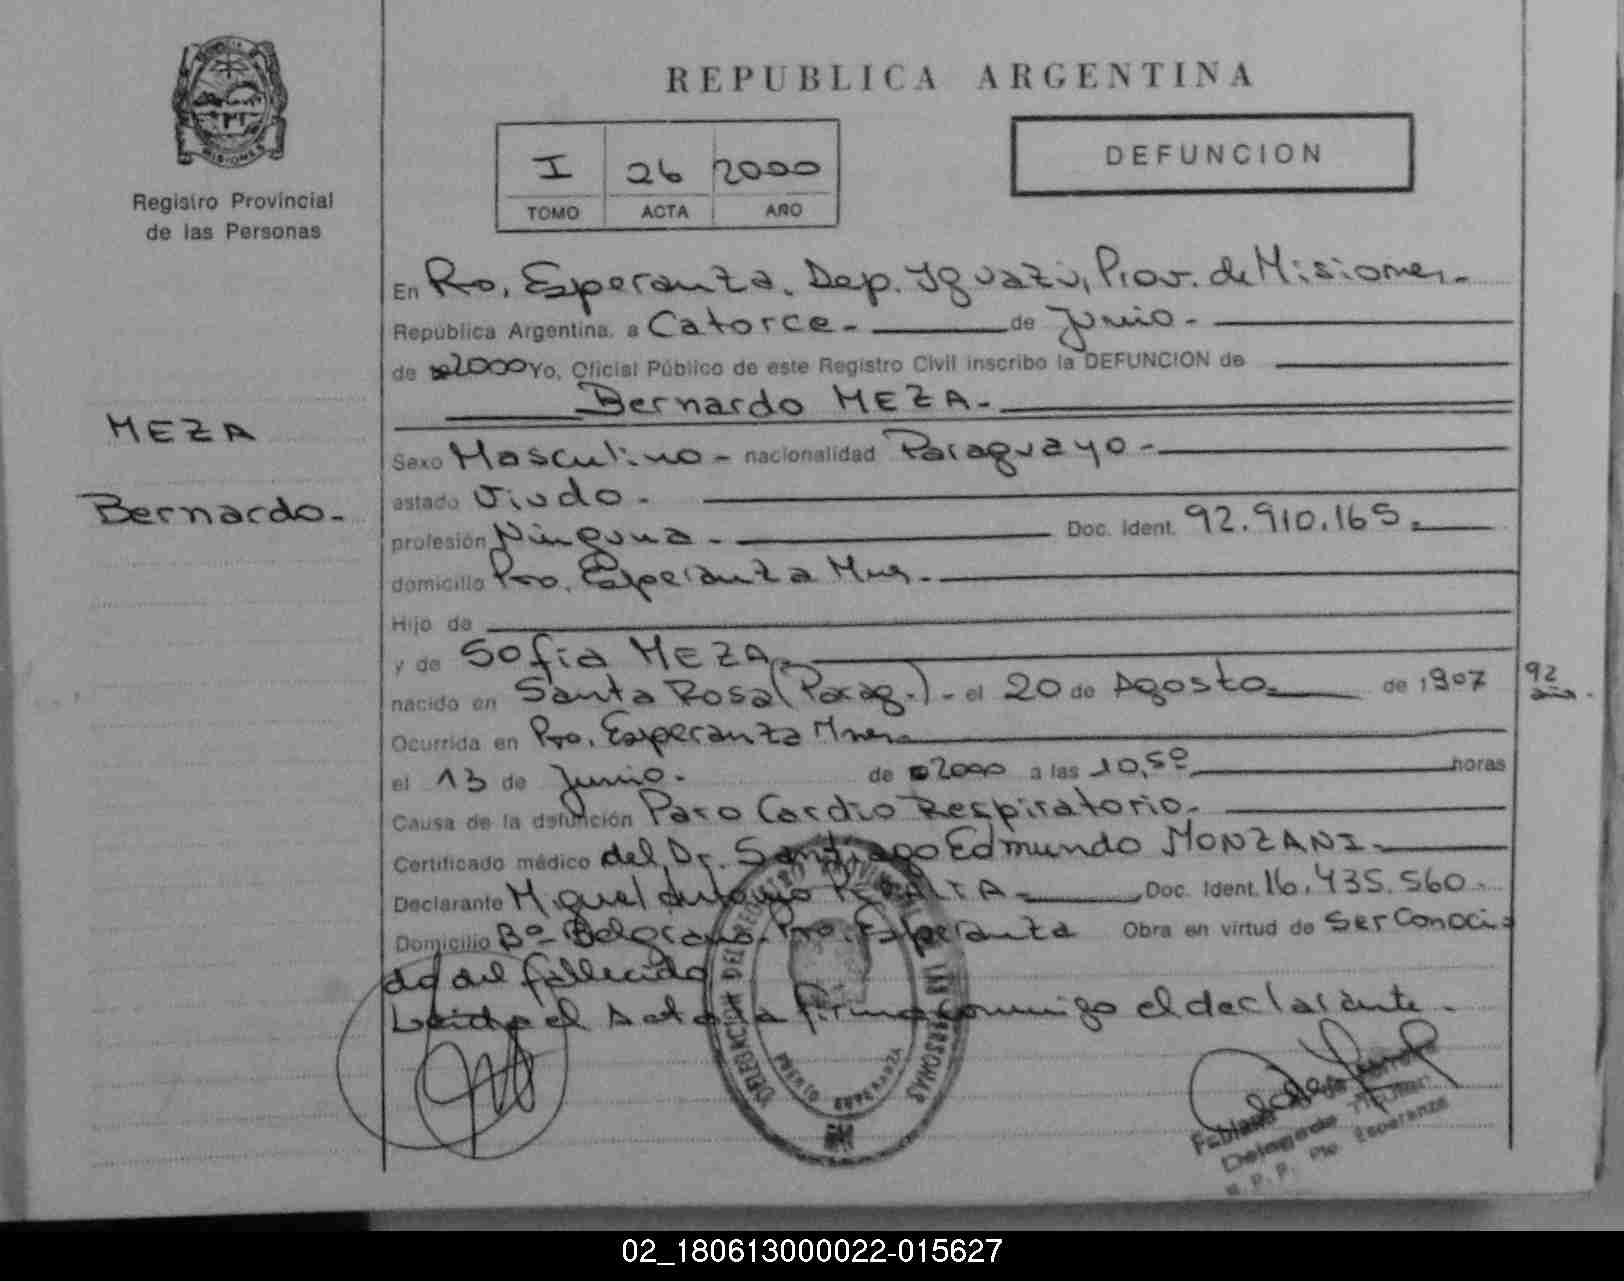 REPUBLICA ARGENTINA
MISIONES
Registro Provincial
de las Personas
I 26 2000
TOMO ACTA AÑO
DEFUNCION
MEZA
Bernardo.-
En Pto. Esperanza. Dep. Iguazú, Prov. de Misiones.-
República Argentina, a Catorce.- de Junio.-
de 2000 Yo, Oficial Público de este Registro Civil inscribo la DEFUNCION de
Bernardo MEZA.-
Sexo Masculino.- nacionalidad Paraguayo.-
estado Viudo.-
profesión Ninguna.- Doc. Ident. 92.910.165.-
domicilio Pto. Esperanza Mnes.-
Hijo de
y de Sofia MEZA.-
nacido en Santa Rosa (Parag.).- el 20 de Agosto.- de 1907 92
años.-
Ocurrida en Pto. Esperanza Mnes.-
el 13 de Junio.- de 2000 a las 10,50 horas
Causa de la defunción Paro Cardio Respiratorio.-
Certificado médico del Dr. Santiago Edmundo MONZANI.-
Declarante Miguel Antonio PERALTA.- Doc. Ident. 16.435.560.-
Domicilio Bº Belgrano. Pto. Esperanza Obra en virtud de Ser Conoci-
do del fallecido
Leida el Acta la firma conmigo el declarante.-
DELEGACION DEL REGISTRO PROVINCIAL DE LAS PERSONAS
Delegada Titular
R.P.P. Pto. Esperanza
02_180613000022-015627